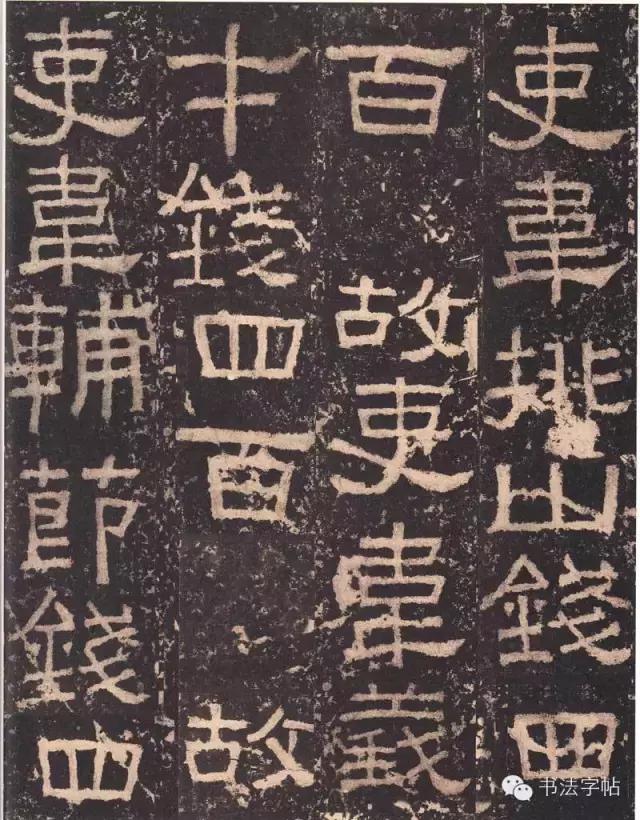 吏韋排山錢四
百 故吏韋義
才錢四百 故
吏韋輔節錢四
书法字帖